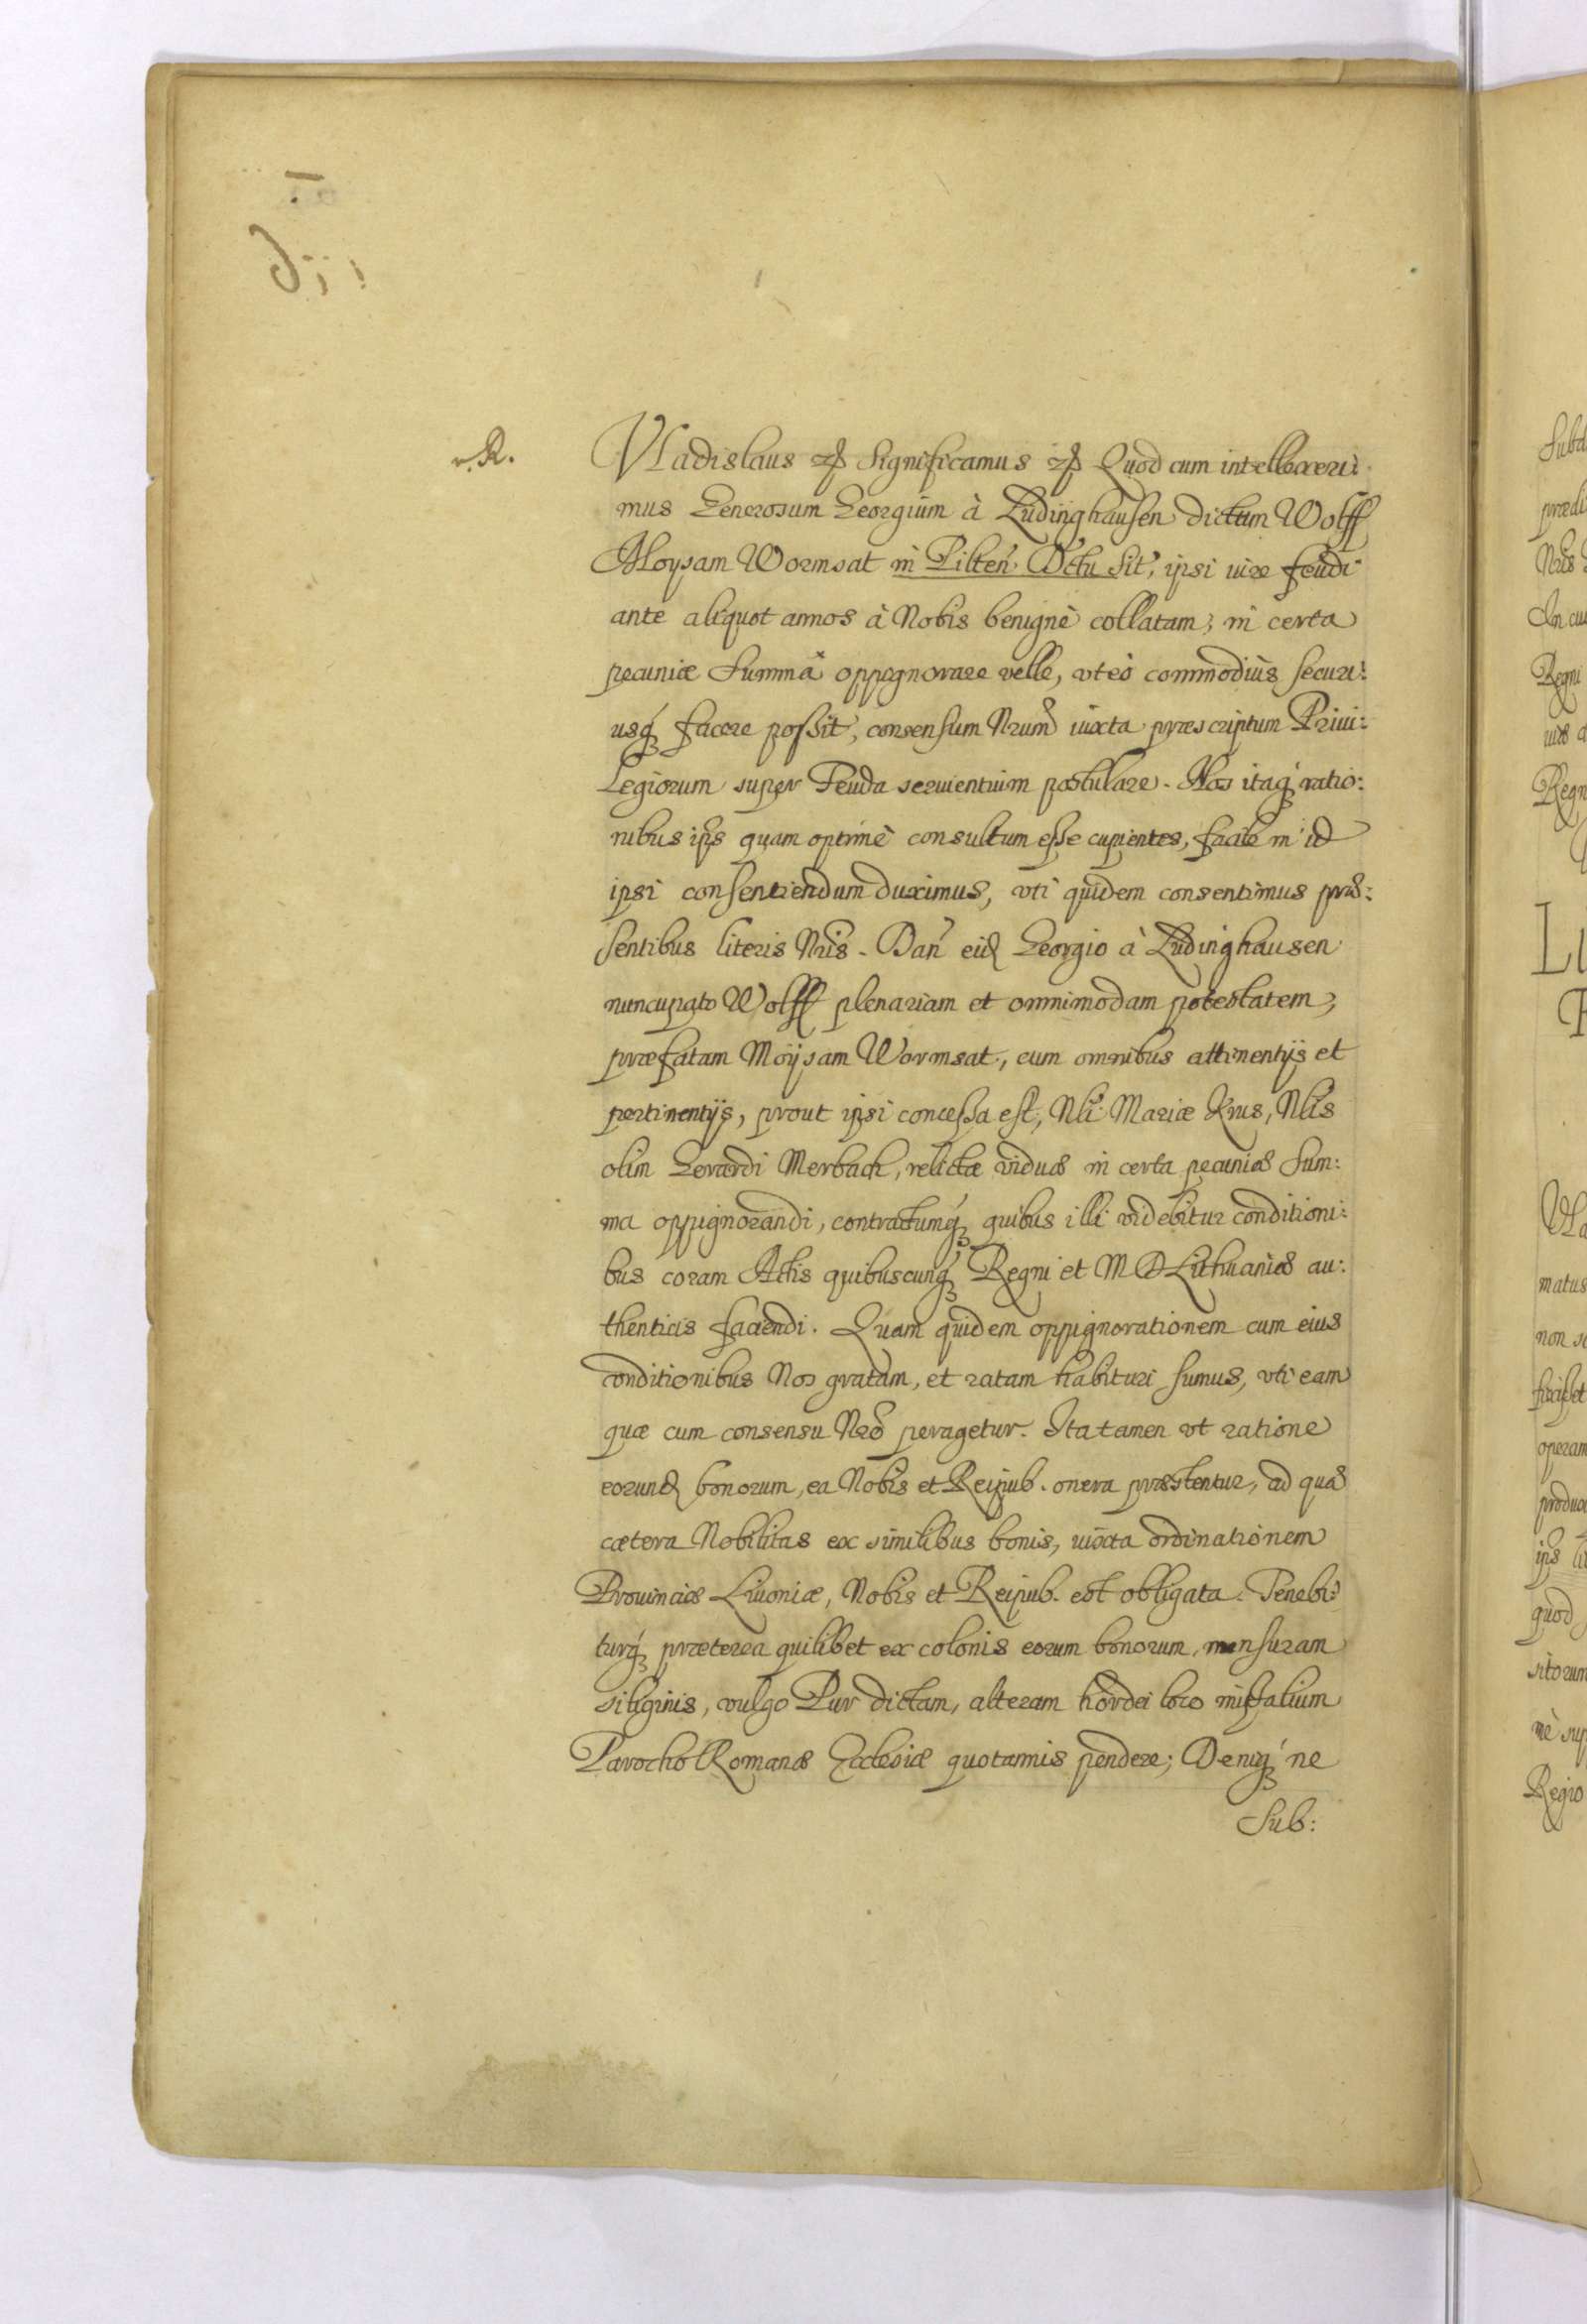 v. R.
Vladislaus etc. Significamus etc. Quod cum intellexeri:
mus Generosum Georgium à Ludinghausen dictum Wolff
Moysam Wormsat in Pilten. Dctu sit, ipsi iure feudi
ante aliquot annos à Nobis benignè collatam, in certa
pecuniæ Summa oppignorare velle, vt eò commodiùs securi:
usq́ꝫ facere possit, consensum Nrum iuxta præscriptum Priui:
legiorum super Feuda seruientium postulare. Nos itaq́ꝫ ratio:
nibus ips quam optimè consultum esse cupientes, facile in id
ipsi consentiendum duximus, vti quidem consentimus præ:
sentibus literis Nris. Dan eid Georgio à Ludinghausen
nuncupato Wolff plenariam et omnimodam potestatem,
præfatam Moysam Wormsat, cum omnibus attinentijs et
pertinentijs, prout ipsi concessa est, Nli Mariæ Krus, Nlis
olim Gerardi Merbach, relictæ viduæ in certa pecuniæ Sum:
ma oppignorandi, contractumq́ꝫ quibus illi videbitur conditioni:
bus coram Actis quibuscunq́ꝫ Regni et M D Lithuaniæ au:
thenticis faciendi. Quam quidem oppignorationem cum eius
conditionibus Nos gratam, et ratam habituri sumus, vti eam
quæ cum consensu Nro peragetur. Ita tamen vt ratione
eorund bonorum, ea Nobis et Reipub. onera præstentur, ad quæ
cætera Nobilitas ex similibus bonis, iuxta ordinationem
Prouinciæ Liuoniæ, Nobis et Reipub. est obligata. Tenebi:
turq́ꝫ præterea quilibet ex colonis eorum bonorum, mensuram
siliginis, vulgo Pur dictam, alteram hordei loco missalium
Parocho Romanæ Ecclesiæ quotannis pendere; Deniq́ꝫ ne
Sub: